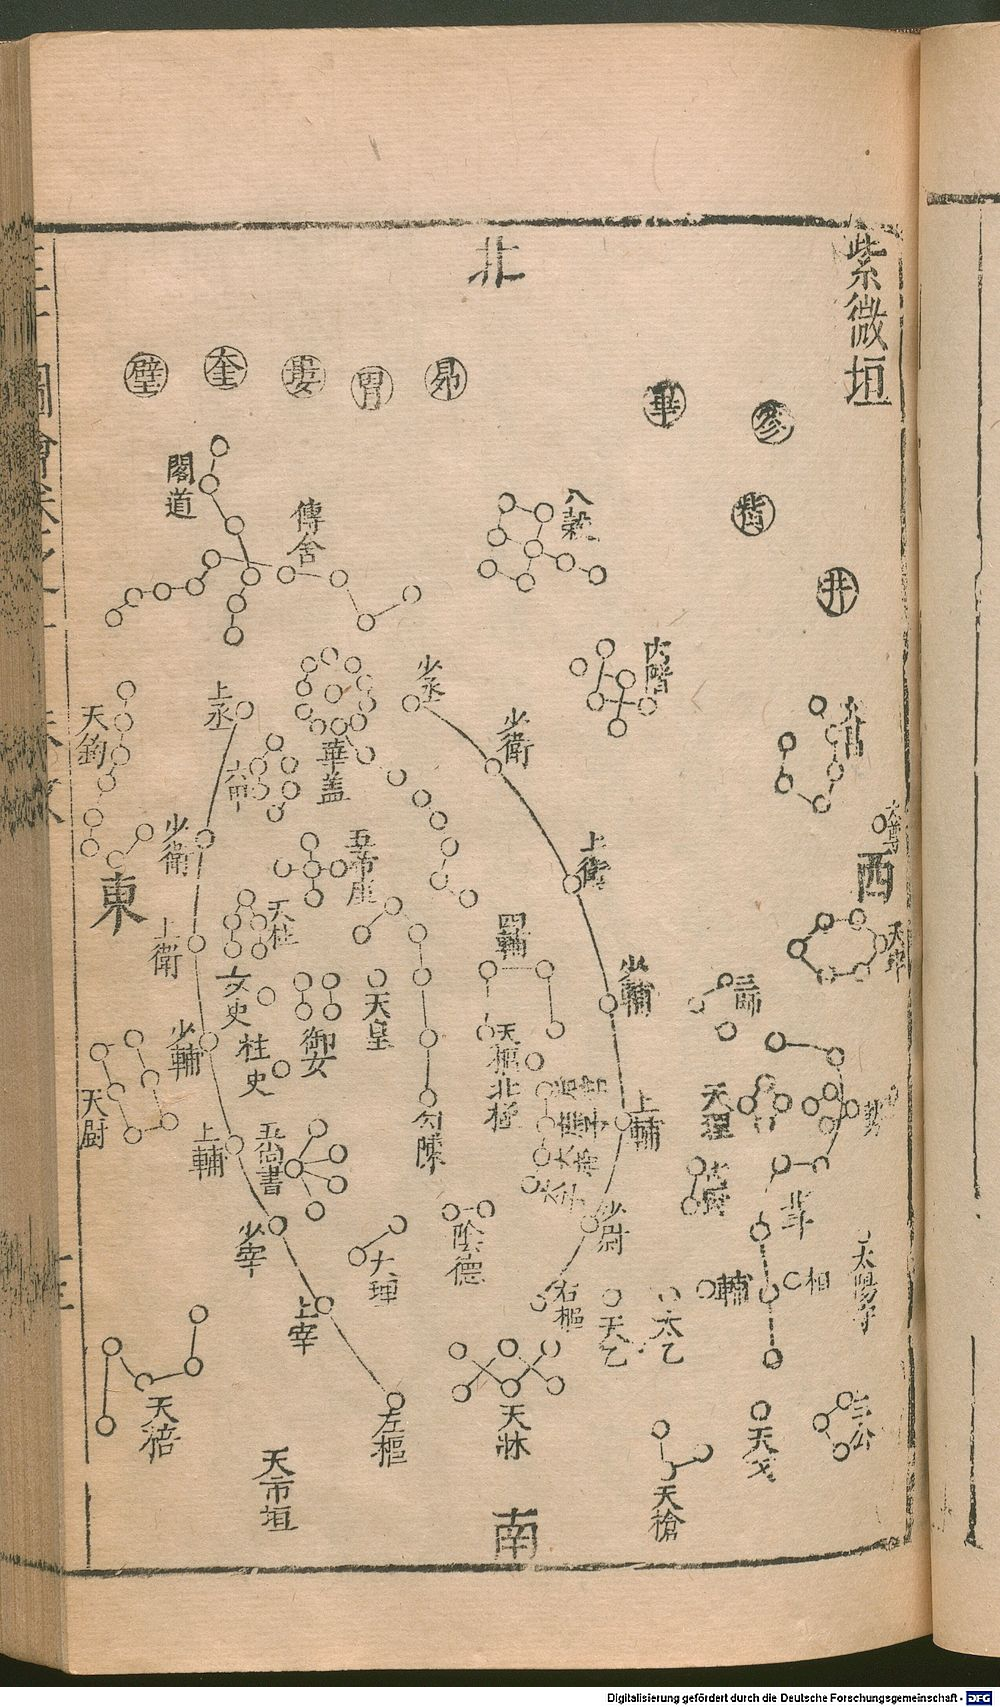 紫微垣
北
參
畢
昴
胃
婁
奎
壁
觜
井
八穀
傳舍
閣道
內階
少丞
上丞
少衛
天鈎
華盖
六甲
上衛
少衛
五帝座
西
東
天柱
四輔
上衛
少輔
三師
女史
天皇
御女
柱史
少輔
天樞北極
天理
上輔
勢
天尉
勾陳
五尚書
上輔
少尉
陰德
少宰
大理
右樞
天乙
太乙
輔
相
太陽守
上宰
天棓
左樞
天牀
天戈
三公
天槍
天市垣
南
Digitalisierung gefördert durch die Deutsche Forschungsgemeinschaft - DFG